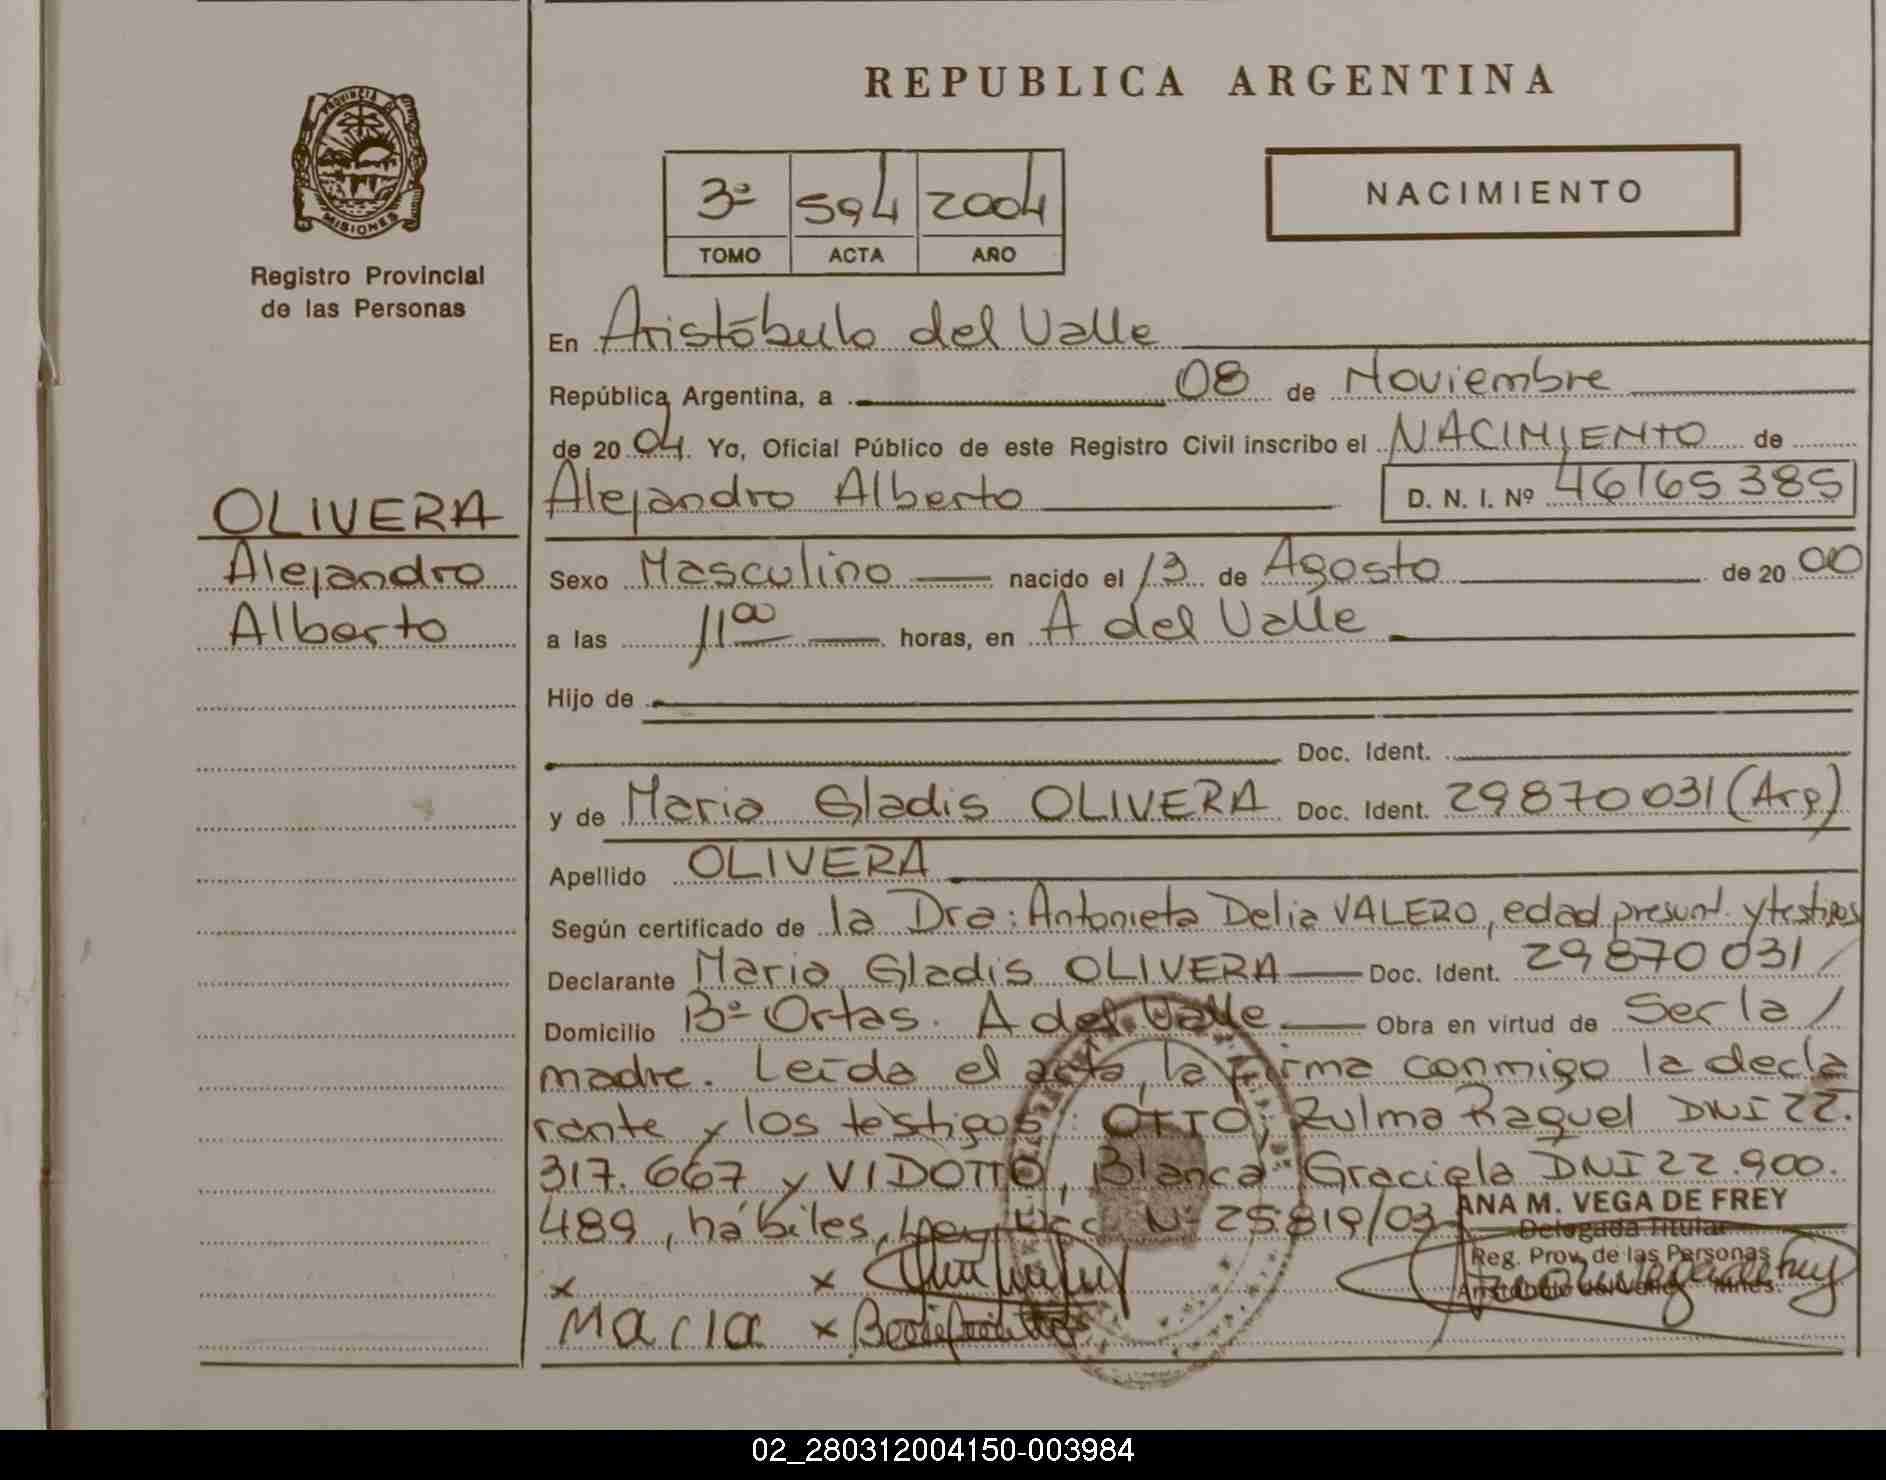 REPUBLICA ARGENTINA
PROVINCIA DE
MISIONES
Registro Provincial
de las Personas
3º 594 2004
TOMO ACTA AÑO
NACIMIENTO
En Aristóbulo del Valle
República Argentina, a 08 de Noviembre
de 2004. Yo, Oficial Público de este Registro Civil inscribo el NACIMIENTO de
Alejandro Alberto D. N. I. Nº 46165385
OLIVERA
Alejandro
Alberto
Sexo Masculino nacido el 13 de Agosto de 2000
a las 11 00 horas, en A del Valle
Hijo de
Doc. Ident.
y de Maria Gladis OLIVERA Doc. Ident. 29870031 (Arg)
Apellido OLIVERA
Según certificado de la Dra: Antonieta Delia VALERO, edad presunt. y testigos
Declarante Maria Gladis OLIVERA Doc. Ident. 29870031/
Domicilio Bº Ortas. A del Valle Obra en virtud de Ser la /
madre. Leída el acta, la firma conmigo la decla
rante y los testigos: OTTO, Zulma Raquel DNI 22.
317.667 y VIDOTTO, Blanca Graciela DNI 22.900.
489, hábiles, Nº 25.819/03
ANA M. VEGA DE FREY
Delegada Titular
Reg. Prov. de las Personas
Aristóbulo del Valle Mnes.
x x
Maria x
02_280312004150-003984